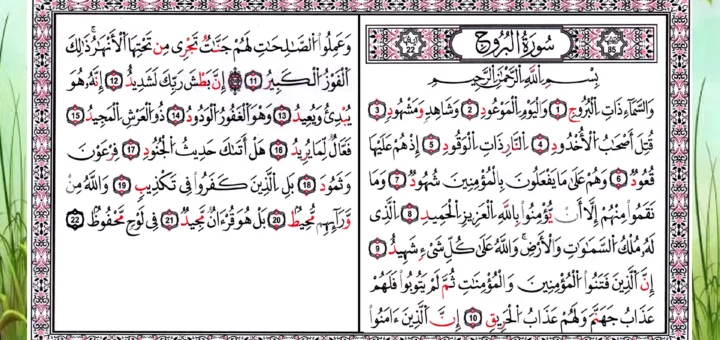 سُورَةُ الْبُرُوجِ
85
22
بِسْمِ اللَّهِ الرَّحْمَٰنِ الرَّحِيمِ
وَالسَّمَاءِ ذَاتِ الْبُرُوجِ ١ وَالْيَوْمِ الْمَوْعُودِ ٢ وَشَاهِدٍ وَمَشْهُودٍ ٣
قُتِلَ أَصْحَابُ الْأُخْدُودِ ٤ النَّارِ ذَاتِ الْوَقُودِ ٥ إِذْ هُمْ عَلَيْهَا
قُعُودٌ ٦ وَهُمْ عَلَىٰ مَا يَفْعَلُونَ بِالْمُؤْمِنِينَ شُهُودٌ ٧ وَمَا
نَقَمُوا مِنْهُمْ إِلَّا أَن يُؤْمِنُوا بِاللَّهِ الْعَزِيزِ الْحَمِيدِ ٨ الَّذِي
لَهُ مُلْكُ السَّمَٰوَٰتِ وَالْأَرْضِ ۚ وَاللَّهُ عَلَىٰ كُلِّ شَيْءٍ شَهِيدٌ ٩
إِنَّ الَّذِينَ فَتَنُوا الْمُؤْمِنِينَ وَالْمُؤْمِنَٰتِ ثُمَّ لَمْ يَتُوبُوا فَلَهُمْ
عَذَابُ جَهَنَّمَ وَلَهُمْ عَذَابُ الْحَرِيقِ ١٠ إِنَّ الَّذِينَ ءَامَنُوا
وَعَمِلُوا الصَّٰلِحَٰتِ لَهُمْ جَنَّٰتٌ تَجْرِي مِن تَحْتِهَا الْأَنْهَٰرُ ۚ ذَٰلِكَ
الْفَوْزُ الْكَبِيرُ ١١ إِنَّ بَطْشَ رَبِّكَ لَشَدِيدٌ ١٢ إِنَّهُ هُوَ
يُبْدِئُ وَيُعِيدُ ١٣ وَهُوَ الْغَفُورُ الْوَدُودُ ١٤ ذُو الْعَرْشِ الْمَجِيدُ ١٥
فَعَّالٌ لِّمَا يُرِيدُ ١٦ هَلْ أَتَىٰكَ حَدِيثُ الْجُنُودِ ١٧ فِرْعَوْنَ
وَثَمُودَ ١٨ بَلِ الَّذِينَ كَفَرُوا فِي تَكْذِيبٍ ١٩ وَاللَّهُ مِن
وَرَائِهِم مُّحِيطٌ ٢٠ بَلْ هُوَ قُرْءَانٌ مَّجِيدٌ ٢١ فِي لَوْحٍ مَّحْفُوظٍ ٢٢